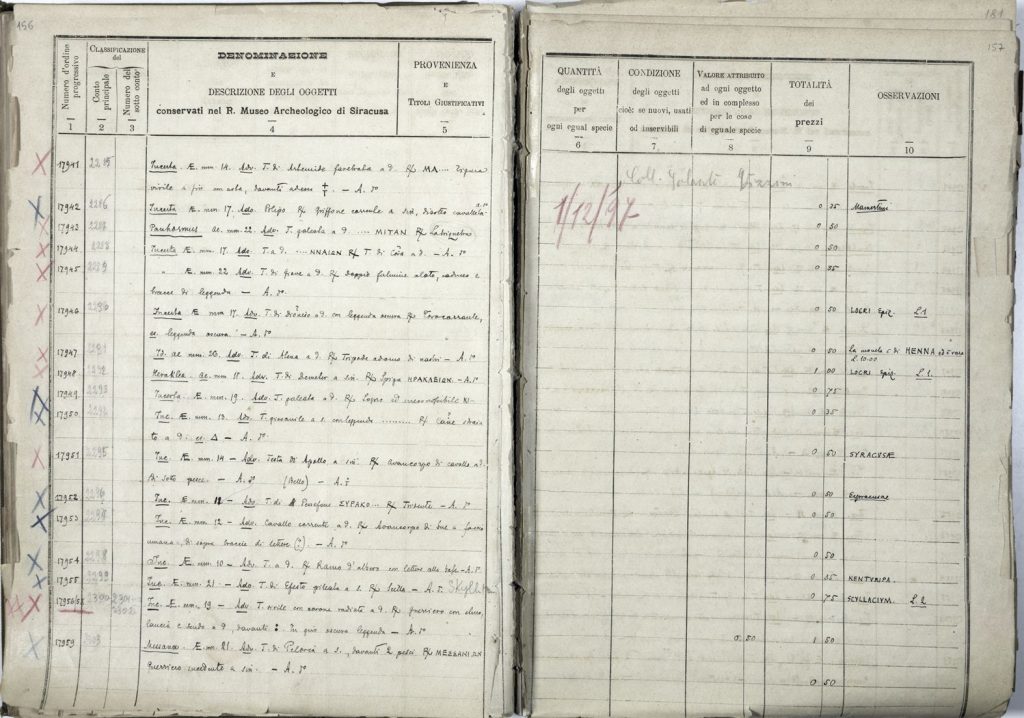 156
Numero d'ordine progressivo
CLASSIFICAZIONE del
Conto principale
Numero del sotto conto
DENOMINAZIONE
E
DESCRIZIONE DEGLI OGGETTI
conservati nel R. Museo Archeologico di Siracusa
PROVENIENZA
E
TITOLI GIUSTIFICATIVI
1 2 3 4 5
17941 2285 Incerta. Æ. mm. 14. Adv. T. di a d. R/ MA.... Figura
virile a piè davanti — A. 5º
17942 2286 Incerta Æ. mm. 17. Adv. Polipo R/ Griffone corrente a sin., disotto cavalletta
17943 2287 Panhormus ae. mm. 22. Adv. T. galeata a d. .... MITAN R/
17944 2288 Incerta Æ. mm. 17. Adv. T. a d. ....NNAION R/ T. di a d. — A. 5º
17945 2289 " Æ. mm. 22 Adv. T. di giove a d. R/ Doppio fulmine alato, caduceo e
tracce di leggenda — A. 5º
17946 2290 Incerta Æ mm. 17. Adv. T. di a d. con leggenda oscura R/ Toro corrente,
es. leggenda oscura — A. 5º
17947 2291 Id. ae mm. 20. Adv. T. di Atena a d. R/ Tripode adorno di nastri — A. 5º
17948 2292 Heraklea ae. mm. 18. Adv. T. di Demeter a sin. R/ Spiga ΗΡΑΚΛΕΙΩΝ — A. 5º
17949 2293 Incerta Æ. mm. 19. Adv. T. galeata a d. R/
17950 2294 Inc. Æ mm. 13. Adv. T. giovanile a s. con leggenda ......... R/ Cane
to a d. es. Δ — A. 5º
17951 2295 Inc. Æ. mm. 14 — Adv. Testa di Apollo a sin. R/ avancorpo di cavallo a d.
Di sotto pesce. — A. 5º (Bello) — A. 5º
17952 2296 Inc. Æ. mm. 12 — Adv. T. di Persefone ΣΥΡΑΚΟ... R/ Tridente — A. 5º
17953 2297 Inc. Æ. mm. 12 — Adv. Cavallo corrente a d. R/ Avancorpo di bue a faccia
umana, di sopra traccie di lettere (?) — A. 5º
17954 2298 Inc. Æ mm. 10 — Adv. T. a d. R/ Ramo d'albero con lettere alla base — A. 5º
17955 2299 Inc. Æ. mm. 21. — Adv. T. di Efesto galeata a s. R/ Scilla — A. 5º
17956 2300 2301 2302 Inc. Æ. mm. 19 — Adv. T. virile con corona radiata a d. R/ Guerriero con elmo,
lancia e scudo a d., davanti : In giro oscura leggenda — A. 5º
17959 2303 Messana Æ. mm. 21. Adv. T. di Peloria a s., davanti 2 pesci. R/ ΜΕΣΣΑΝΙΩΝ
Guerriero incedente a sin. — A. 5º
181
157
QUANTITÀ
degli oggetti
per
ogni egual specie
CONDIZIONE
degli oggetti
cioè: se nuovi, usati
od inservibili
VALORE ATTRIBUITO
ad ogni oggetto
ed in complesso
per le cose
di eguale specie
TOTALITÀ
dei
prezzi
OSSERVAZIONI
6 7 8 9 10
Coll.
1/12/97
0 35 Mamertini
0 50
0 50
0 35
0 50 LOCRI Epiz. L 1
0 50 La moneta è di HENNA ed è rara
L. 10.00
1 00 LOCRI Epiz. L 1.
0 75
0 35
0 50 SYRACUSÆ
0 50 Syracusae
0 50
0 50
0 35 KENTURIPA.
0 75 SCYLLACIUM. L. 2
0.50 1 50
0 50